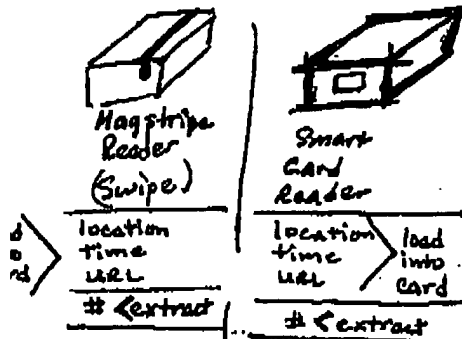 Magstripe
Reader
(Swipe)
location
time
URL
# < extract
Smart
Card
Reader
location
time
URL
load
into
card
# < extract